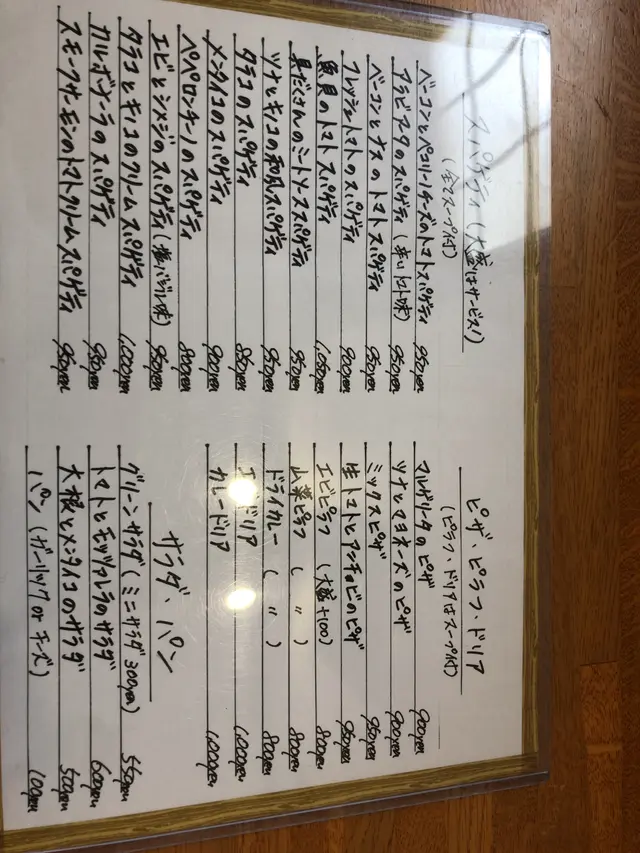 スパゲティ (大盛はサービス!)
(全てスープ付)
ベーコンとペコリーノチーズのトマトスパゲティ 950yen
アラビアータのスパゲティ (辛いトマト味) 950yen
ベーコンとナスのトマトスパゲティ 950yen
フレッシュトマトのスパゲティ 900yen
魚貝のトマトスパゲティ 1,050yen
具だくさんのミートソーススパゲティ 950yen
ツナとキノコの和風スパゲティ 950yen
タラコのスパゲティ 850yen
メンタイコのスパゲティ 900yen
ペペロンチーノのスパゲティ 800yen
エビとシメジのスパゲティ (塩バジル味) 950yen
タラコとキノコのクリームスパゲティ 1,000yen
カルボナーラのスパゲティ 950yen
スモークサーモンのトマトクリームスパゲティ 950yen
ピザ・ピラフ・ドリア
(ピラフ・ドリアはスープ付)
マルゲリータのピザ 900yen
ツナとマヨネーズのピザ 900yen
ミックスピザ 950yen
生トマトとアンチョビのピザ 950yen
エビピラフ (大盛+100) 800yen
山菜ピラフ ( 〃 ) 800yen
ドライカレー ( 〃 ) 800yen
ドリア 1,000yen
カレードリア 1,000yen
サラダ・パン
グリーンサラダ (ミニサラダ 300yen) 550yen
トマトとモッツァレラのサラダ 600yen
大根とメンタイコのサラダ 500yen
パン (ガーリック or チーズ) 100yen